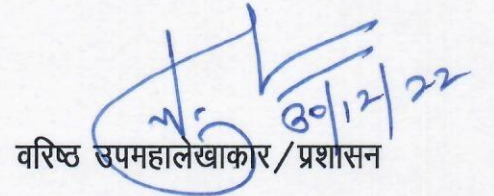 30/12/22
वरिष्ठ उपमहालेखाकार/प्रशासन